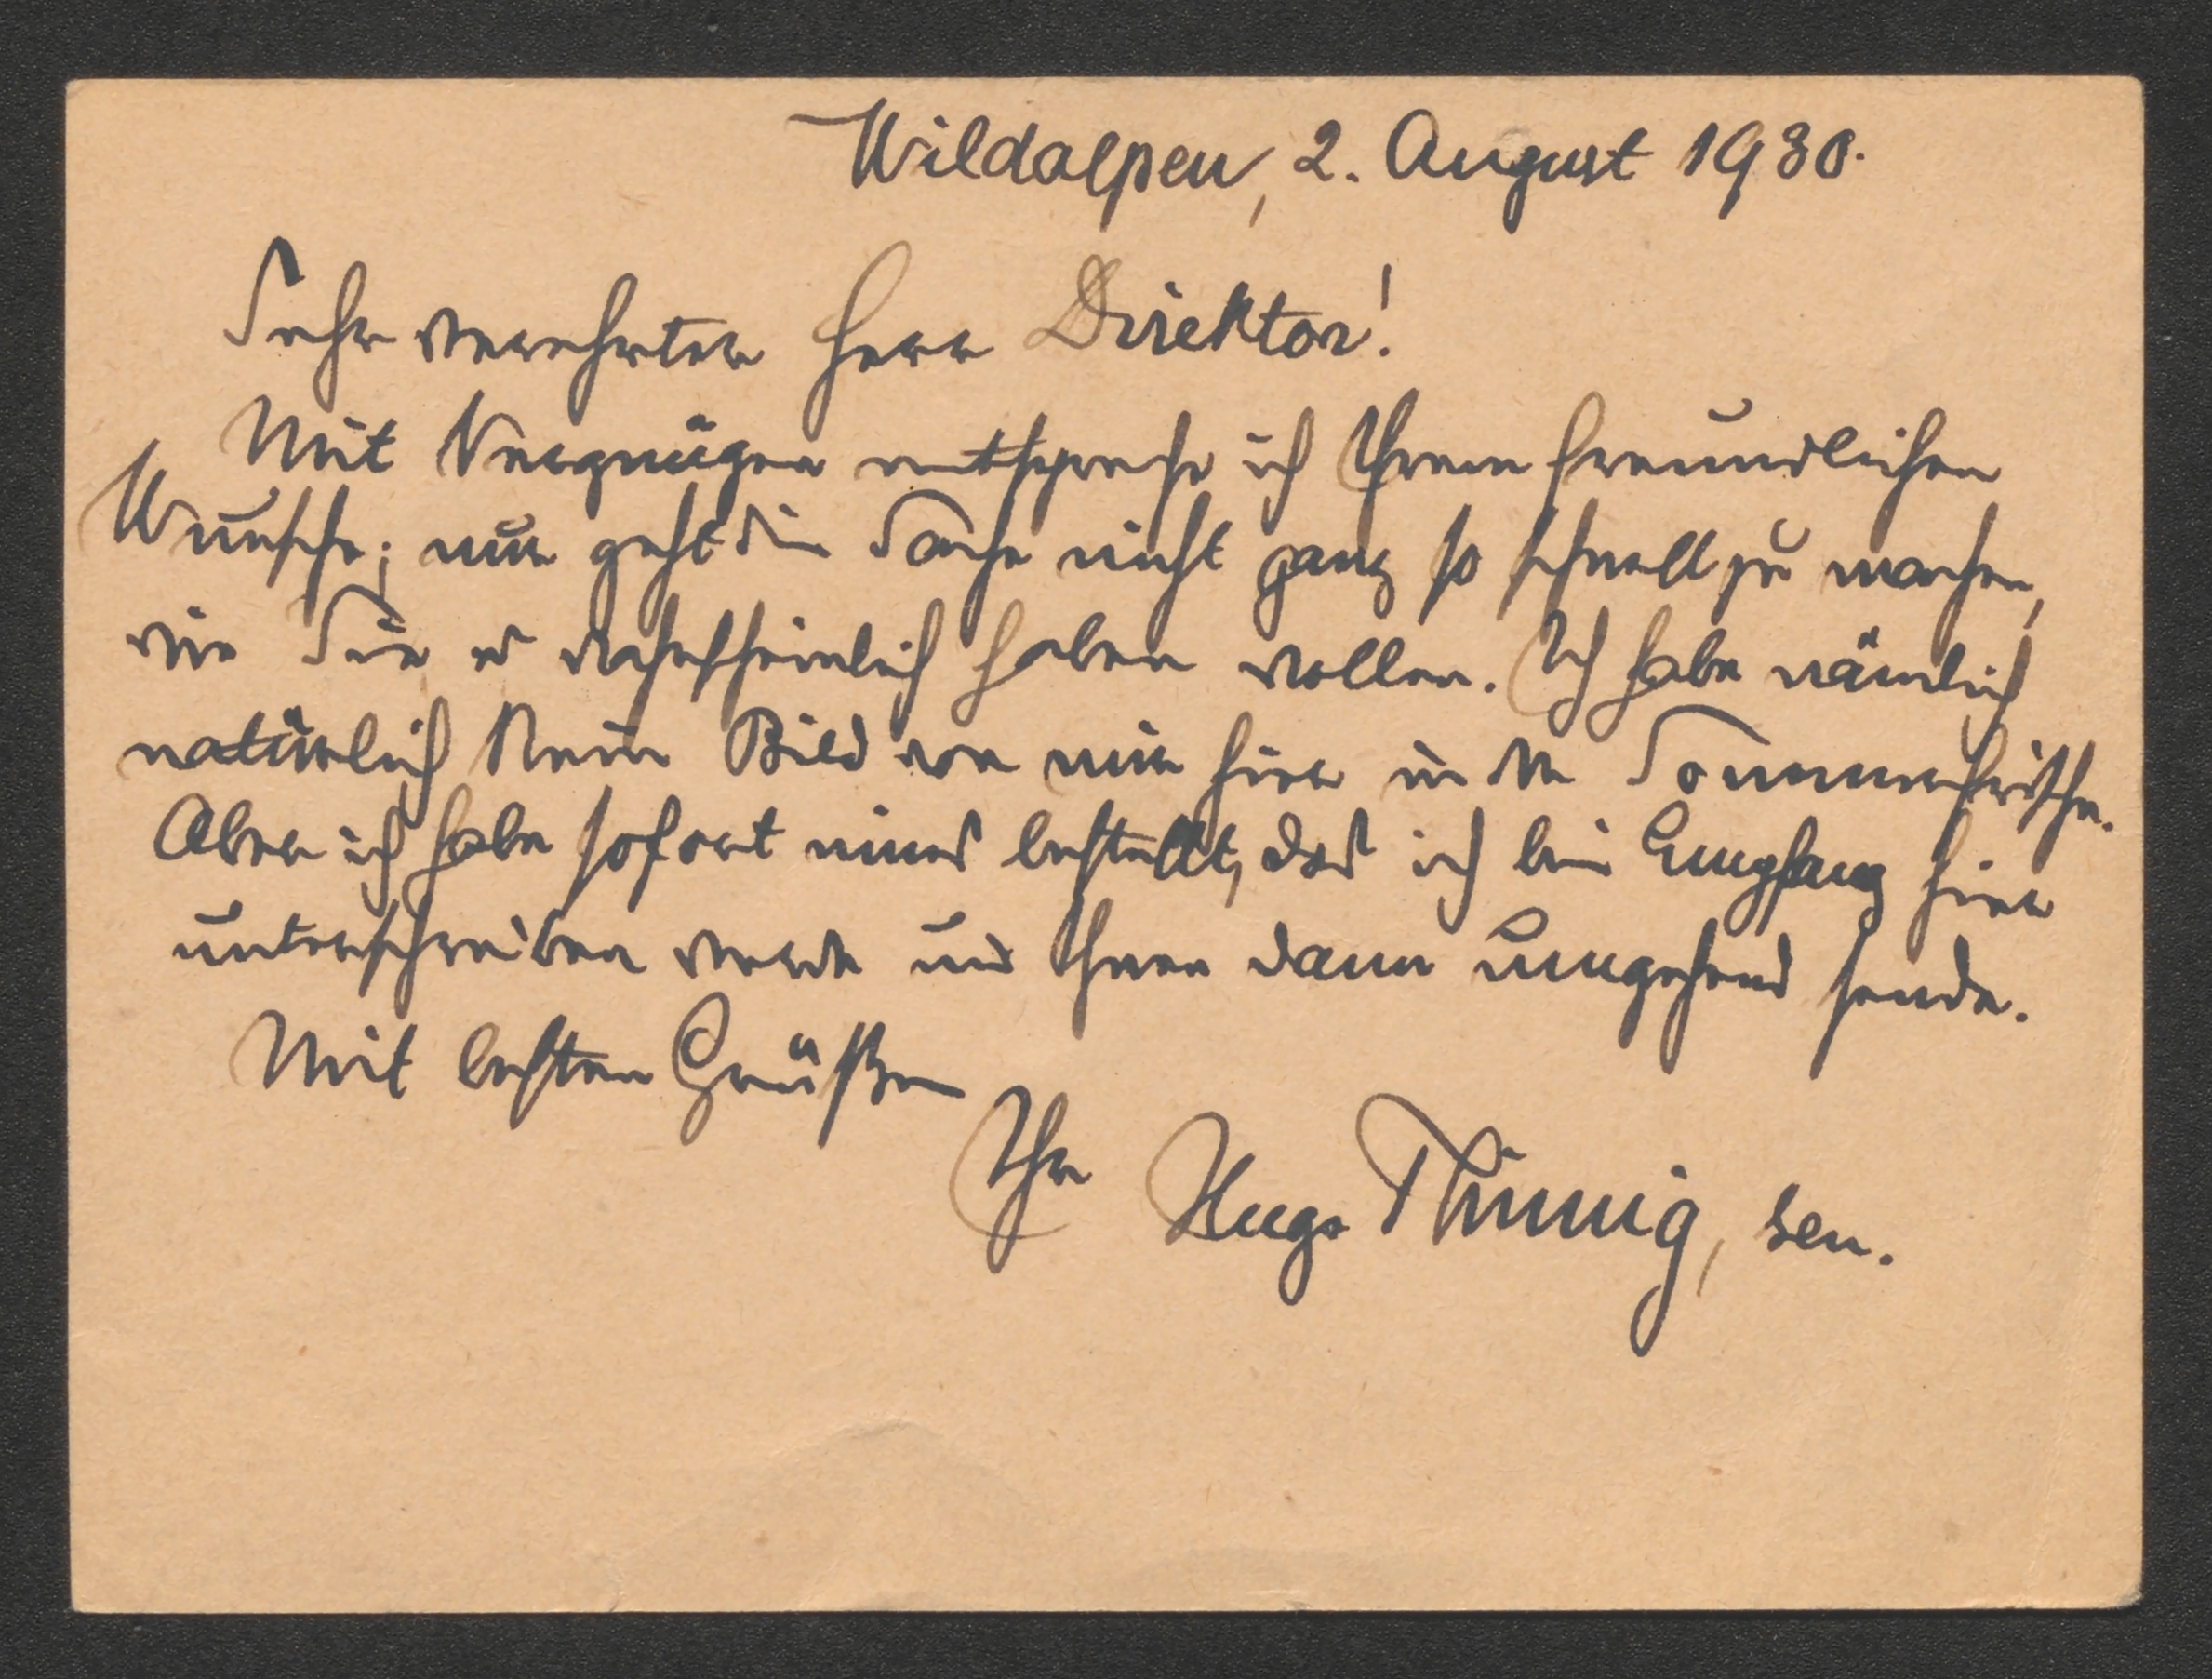 Wildalpen, 2. August 1930.
Sehr verehrter Herr Direktor!
Mit Vergnügen entspreche ich Ihrem freundlichen
Wunsche; nur geht die Sache nicht ganz so schnell zu machen,
wie Sie es wahrscheinlich haben wollen. Ich habe nämlich
natürlich kein Bild von mir hier in der Sommerfrische.
Aber ich habe sofort eines bestellt, das ich bei Empfang hier
unterschreiben werde und Ihnen dann umgehend sende.
Mit besten Grüßen
Ihr Hugo Thimig, sen.